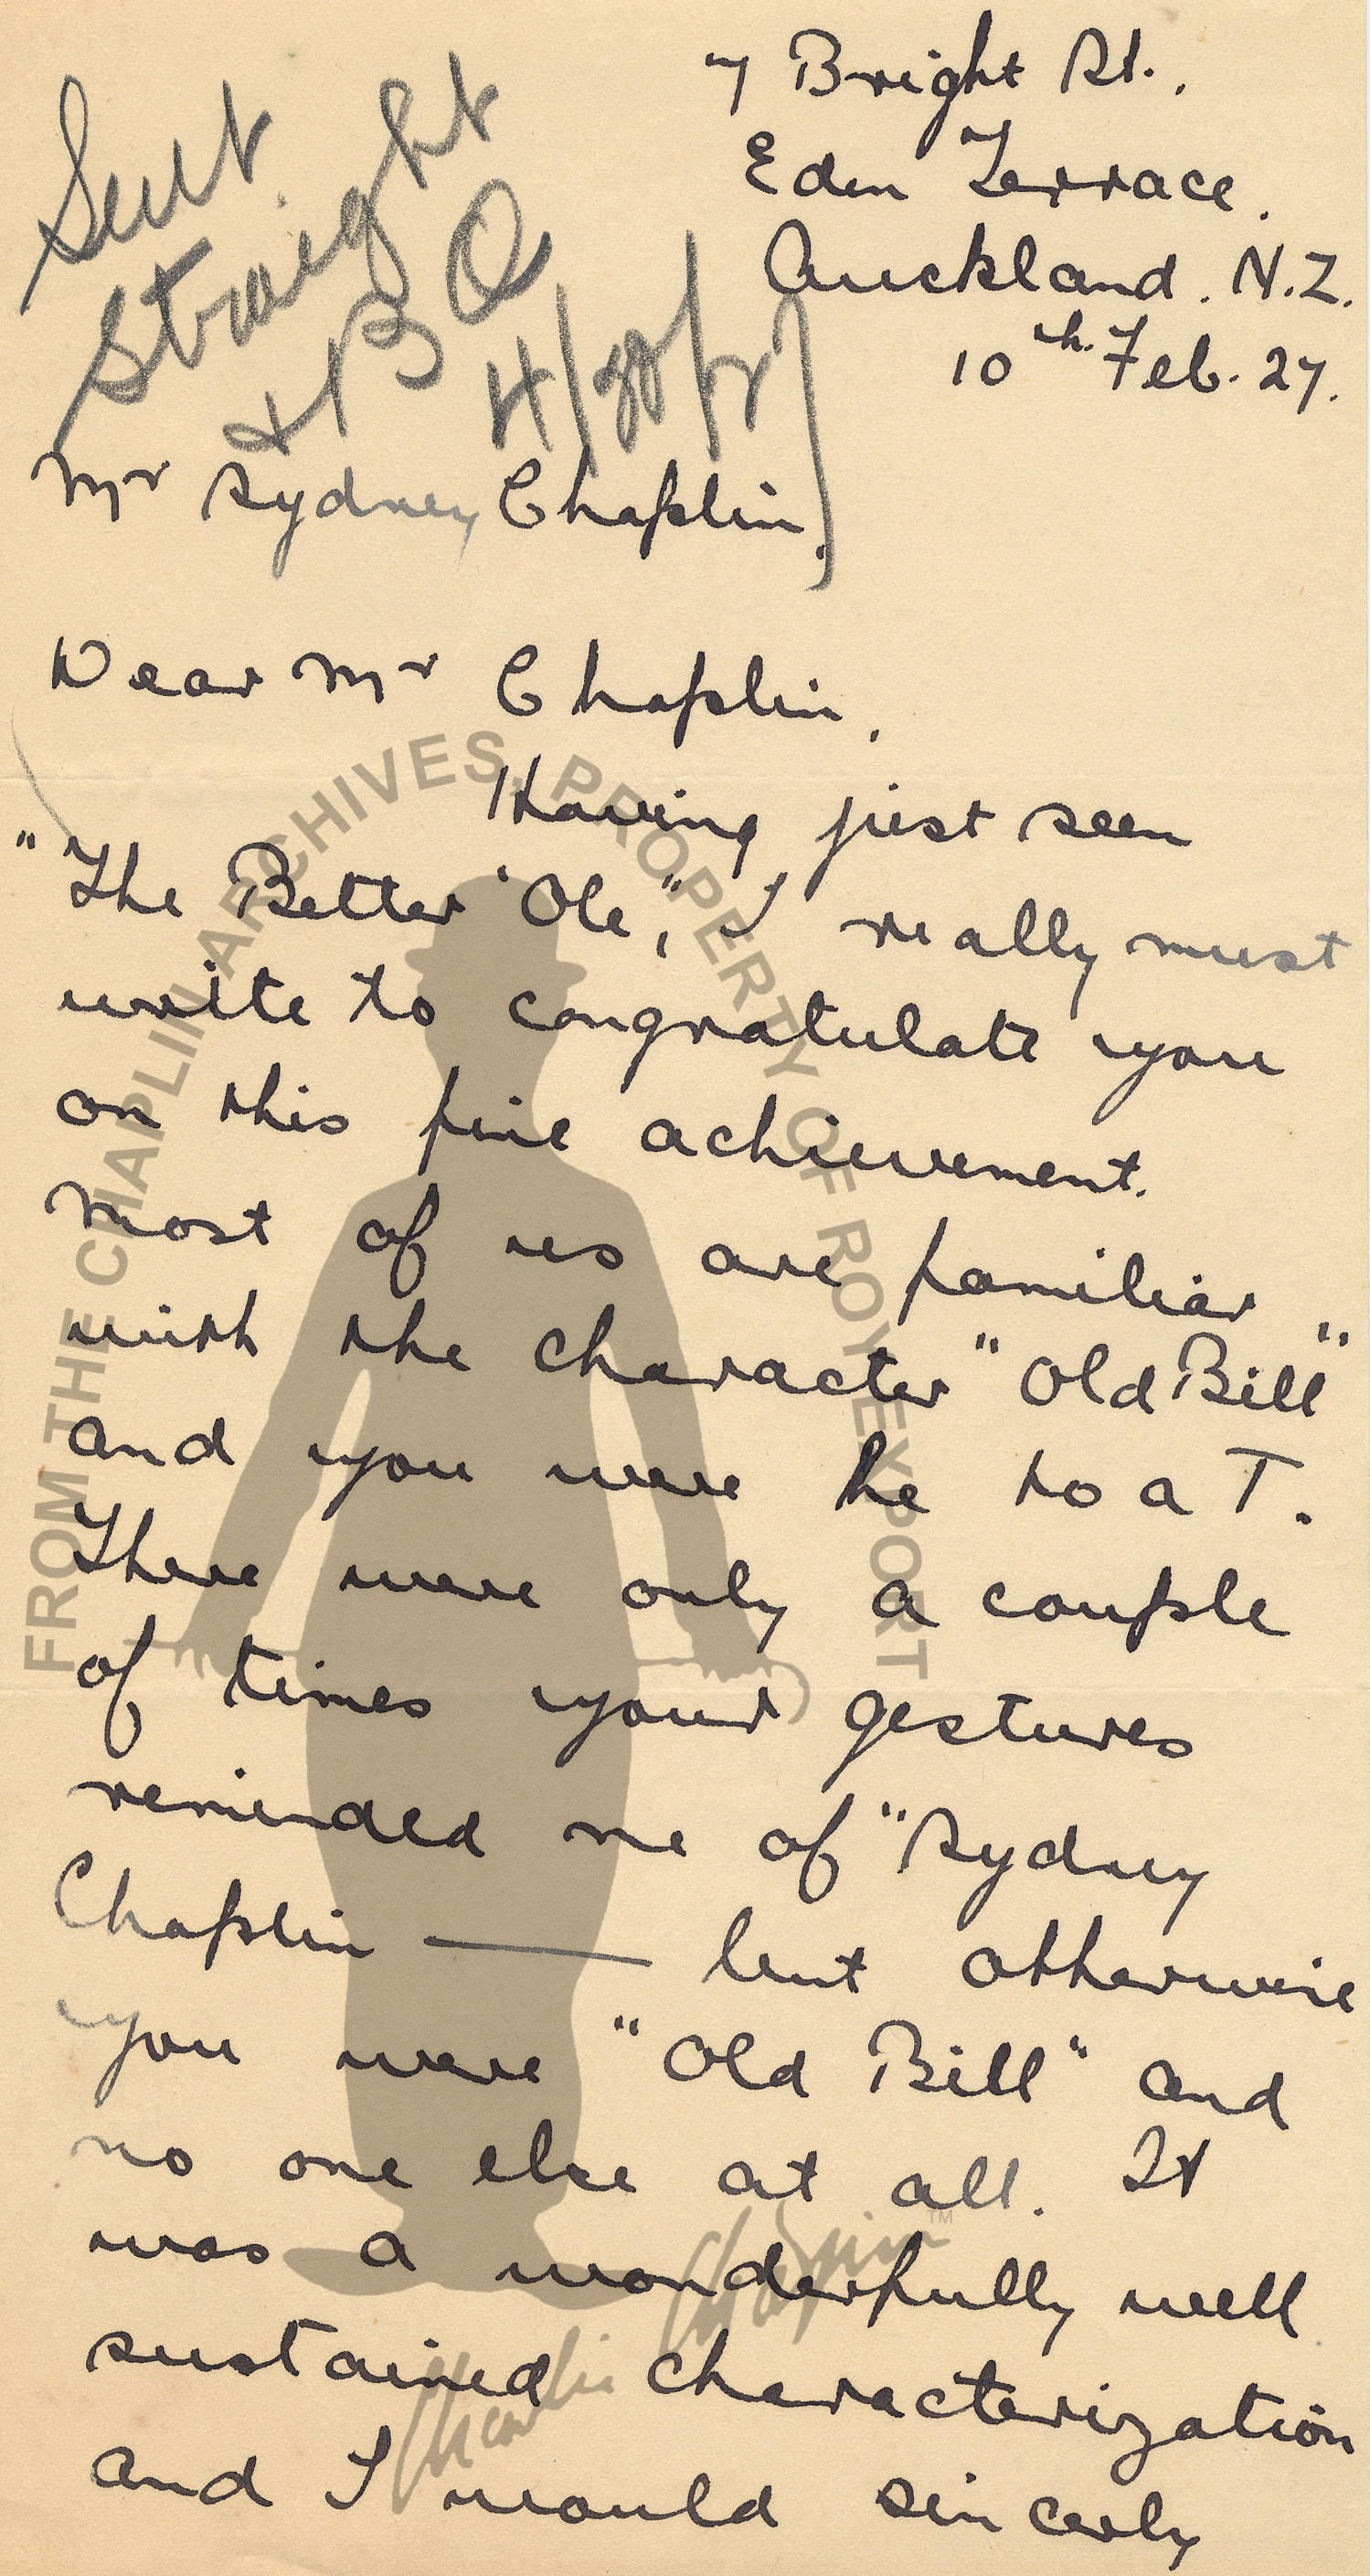 7 Bright St.,
Eden Terrace.
Auckland. N.Z.
10th. Feb. 27.
Sent
Straight
+ B O
Mr Sydney Chaplin.
Dear Mr Chaplin,
Having just seen
"The Better 'Ole," I really must
write to congratulate you
on this fine achievement.
Most of us are familiar
with the character "Old Bill"
and you were he to a T.
There were only a couple
of times your gestures
reminded me of "Sydney
Chaplin — but otherwise
you were "Old Bill" and
no one else at all. It
was a wonderfully well
sustained characterization
and I would sincerly
FROM THE CHAPLIN ARCHIVES, PROPERTY OF ROY EXPORT
Charlie Chaplin ™